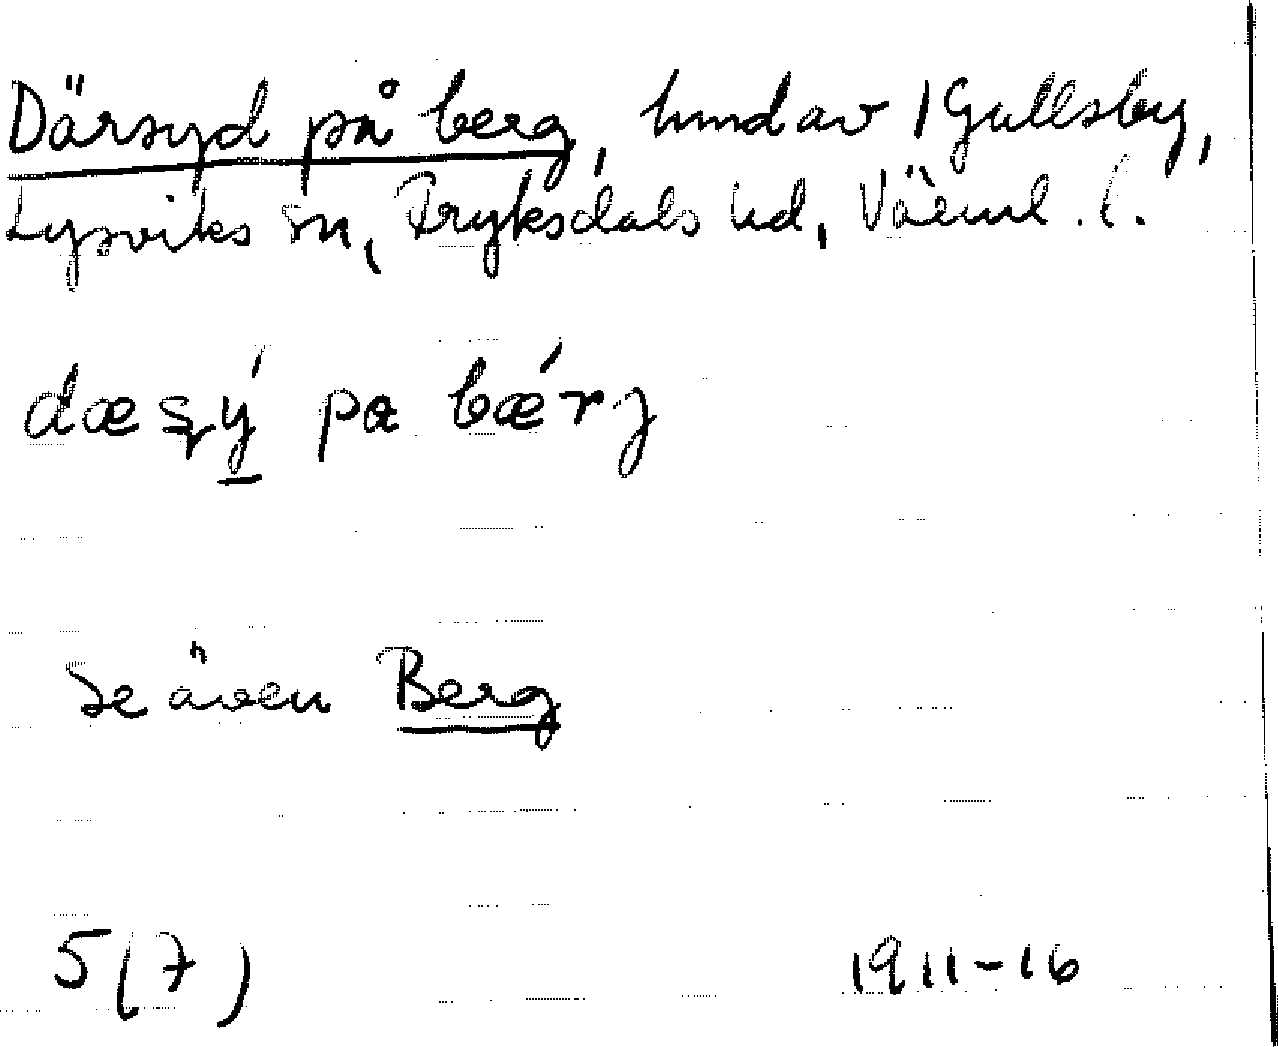 Därsyd på berg, hmd av 1 Gullsby,
Lysviks sn, Fryksdals hd, Värml. l.
dæʂý pa bǽrj
Se även Berg
5(7) 1911-16